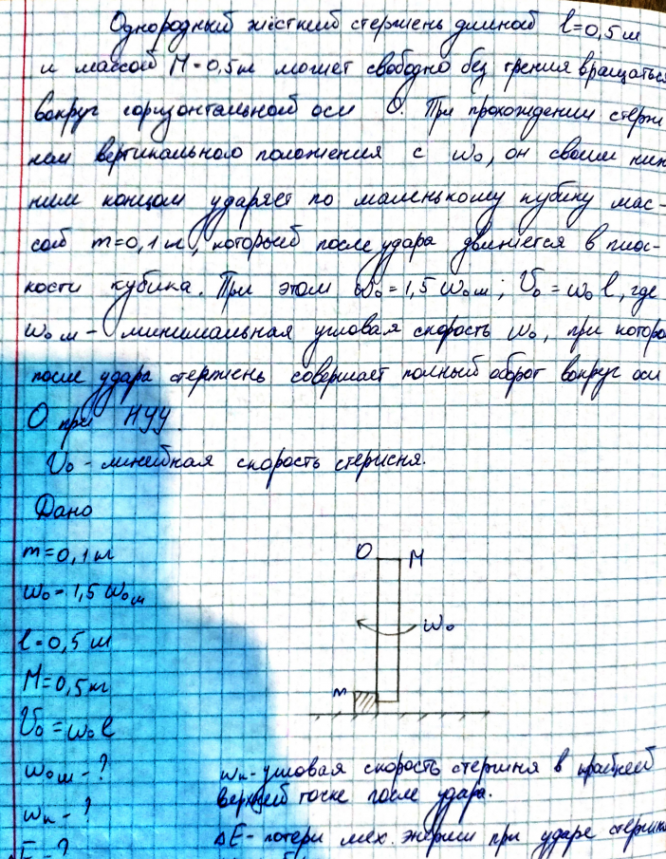 Однородный жёсткий стержень длиной l=0,5 м
и массой M=0,5кг может свободно без трения вращаться
вокруг горизонтальной оси O. При прохождении стерж
нем вертикального положения с ω₀, он своим ниж
ним концом ударяет по маленькому кубику мас-
сой m=0,1 кг, который после удара движется в плос-
кости кубика. При этом ω₀=1,5 ω₀м; V₀=ω₀l, где
ω₀м - минимальная угловая скорость ω₀, при которо
после удара стержень совершает полный оборот вокруг оси
O при НУУ.
V₀ - линейная скорость стержня.
Дано
m=0,1 кг
ω₀=1,5 ω₀м
l=0,5 м
M=0,5кг
V₀=ω₀l
ω₀м - ?
ωк - ?
E - ?
O M
ω₀
m
ωк - угловая скорость стержня в крайней
верхней точке после удара.
ΔE - потери мех. энергии при ударе стержня